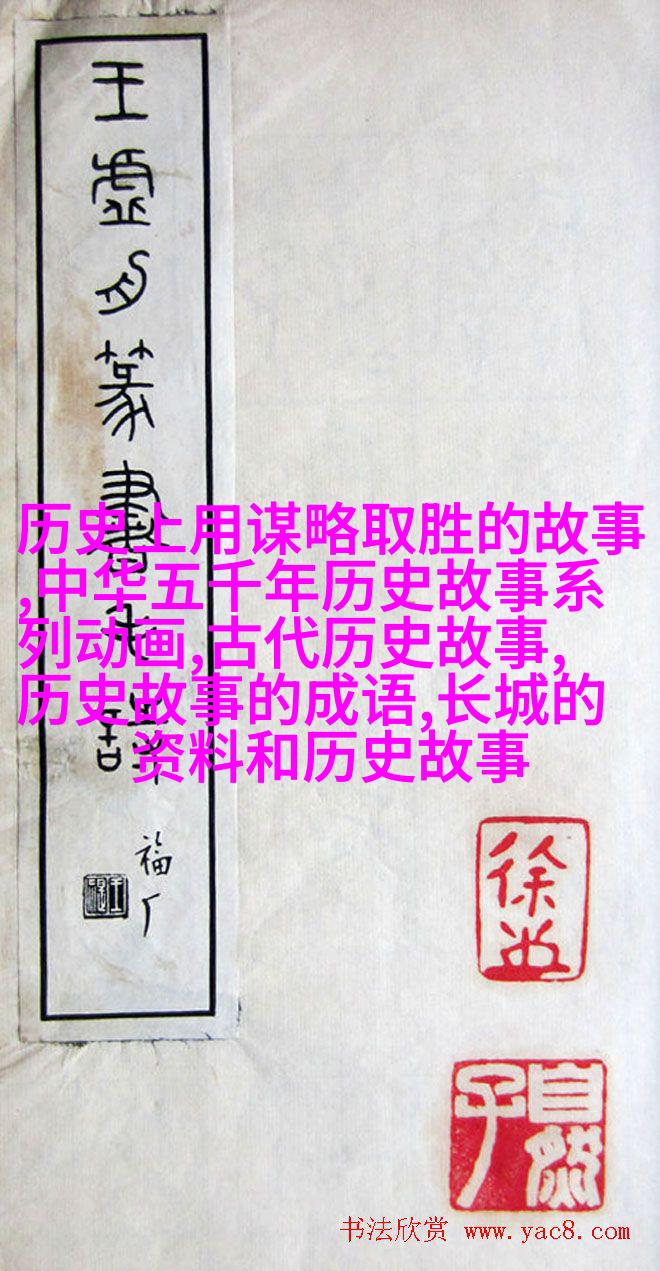 王虛舟篆書
福厂
历史上用谋略取胜的故事
,中华五千年历史故事系
列动画,古代历史故事,
历史故事的成语,长城的
资料和历史故事
徐
自然子
书法欣赏 www.yac8.com